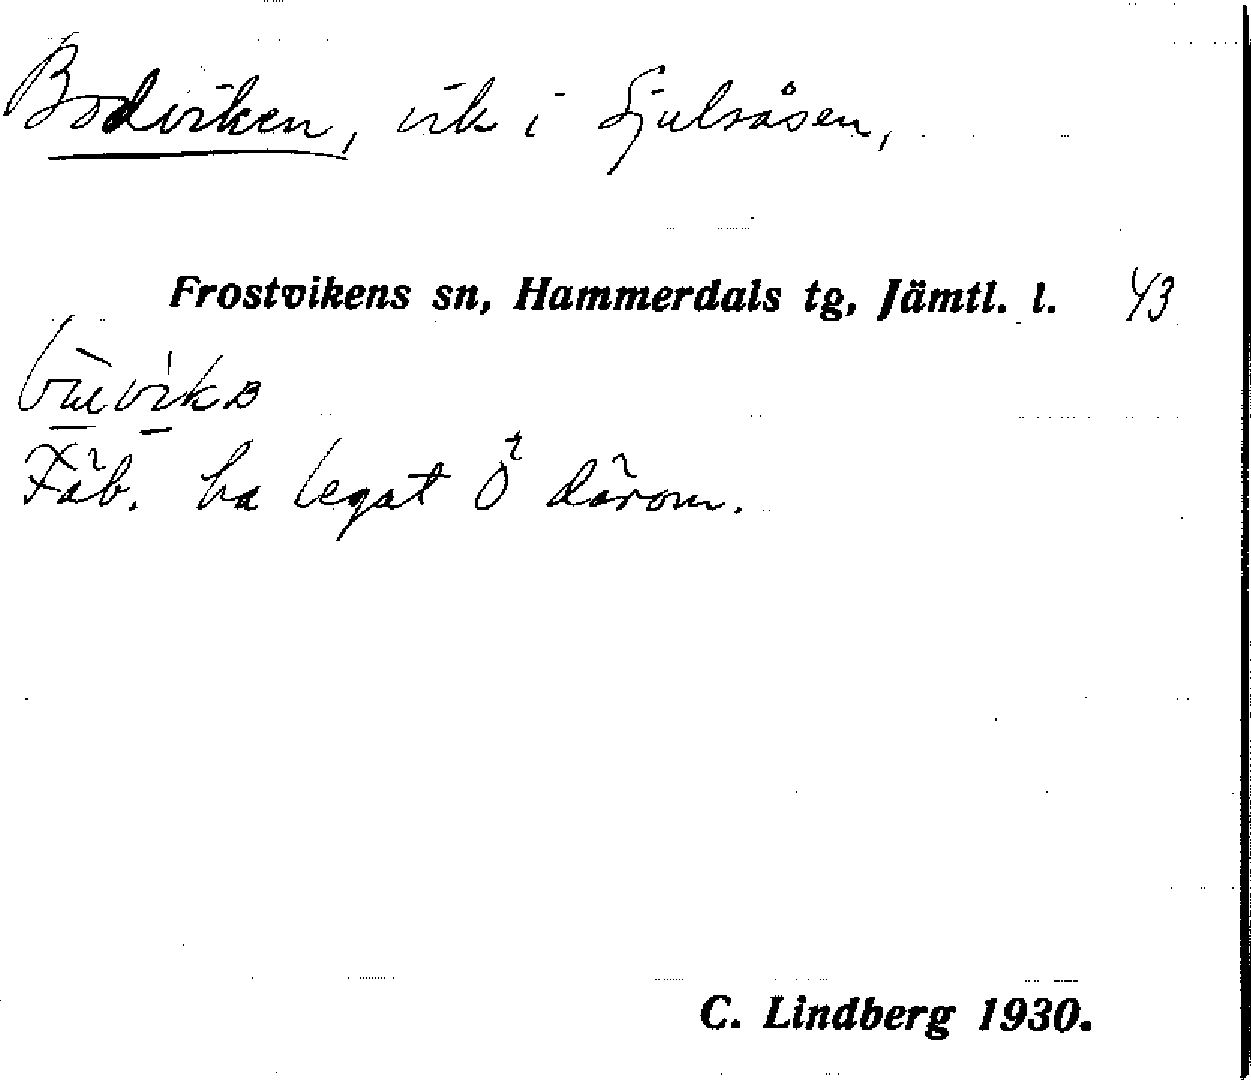 Bodviken, vik i Sjulsåsen,
Frostvikens sn, Hammerdals tg, Jämtl. l. 43
Fäb. ha legat Ö därom.
C. Lindberg 1930.